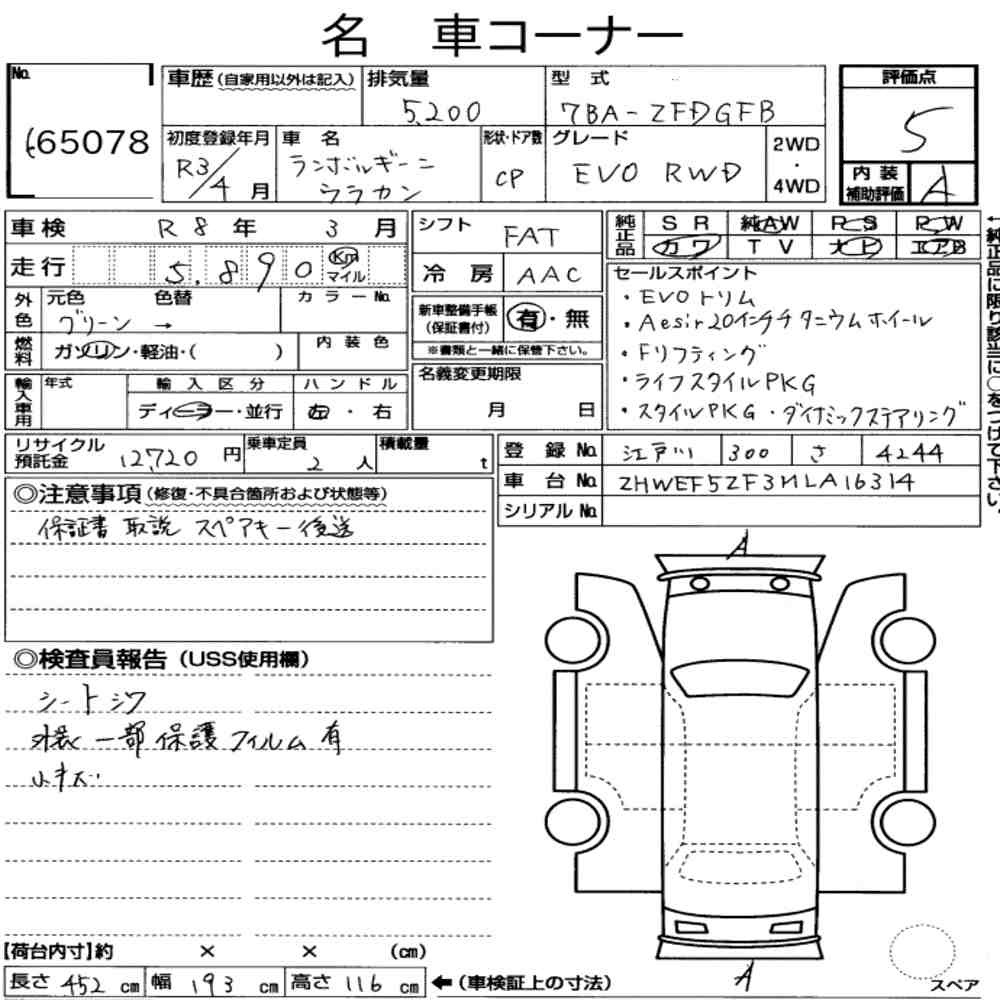 名 車コーナー
No. 65078
車歴(自家用以外は記入) 排気量 5,200 型式 7BA-ZFDGFB 評価点 5
初度登録年月 R3/4月 車名 ランボルギーニ ウラカン 形状・ドア数 CP グレード EVO RWD 2WD・4WD 内装補助評価 A
車検 R8年 3月 シフト FAT 純正品 SR 純AW PS PW
走行 5,890 Km マイル 冷房 AAC カワ TV エアB
外色 元色 グリーン 色替 → カラーNo. 新車整備手帳(保証書付) 有・無 ※書類と一緒に保管下さい。
燃料 ガソリン・軽油・( ) 内装色
輸入車用 年式 輸入区分 ディーラー・並行 ハンドル 左・右 名義変更期限 月 日
セールスポイント
・EVOトリム
・Aesir20インチチタニウムホイール
・Fリフティング
・ライフスタイルPKG
・スタイルPKG・ダイナミックステアリング
←純正品に限り該当に○をつけて下さい。
リサイクル預託金 12,720円 乗車定員 2人 積載量 t
登録No. 江戸川 300 さ 4244
車台No. ZHWEF5ZF3MLA16314
シリアルNo.
◎注意事項(修復・不具合箇所および状態等)
保証書 取説 スペアキー後送
◎検査員報告(USS使用欄)
シートシワ
外装 一部 保護フィルム有
小キズ
A
A
【荷台内寸】約 × × (cm)
長さ 452 cm 幅 193 cm 高さ 116 cm ←(車検証上の寸法)
スペア